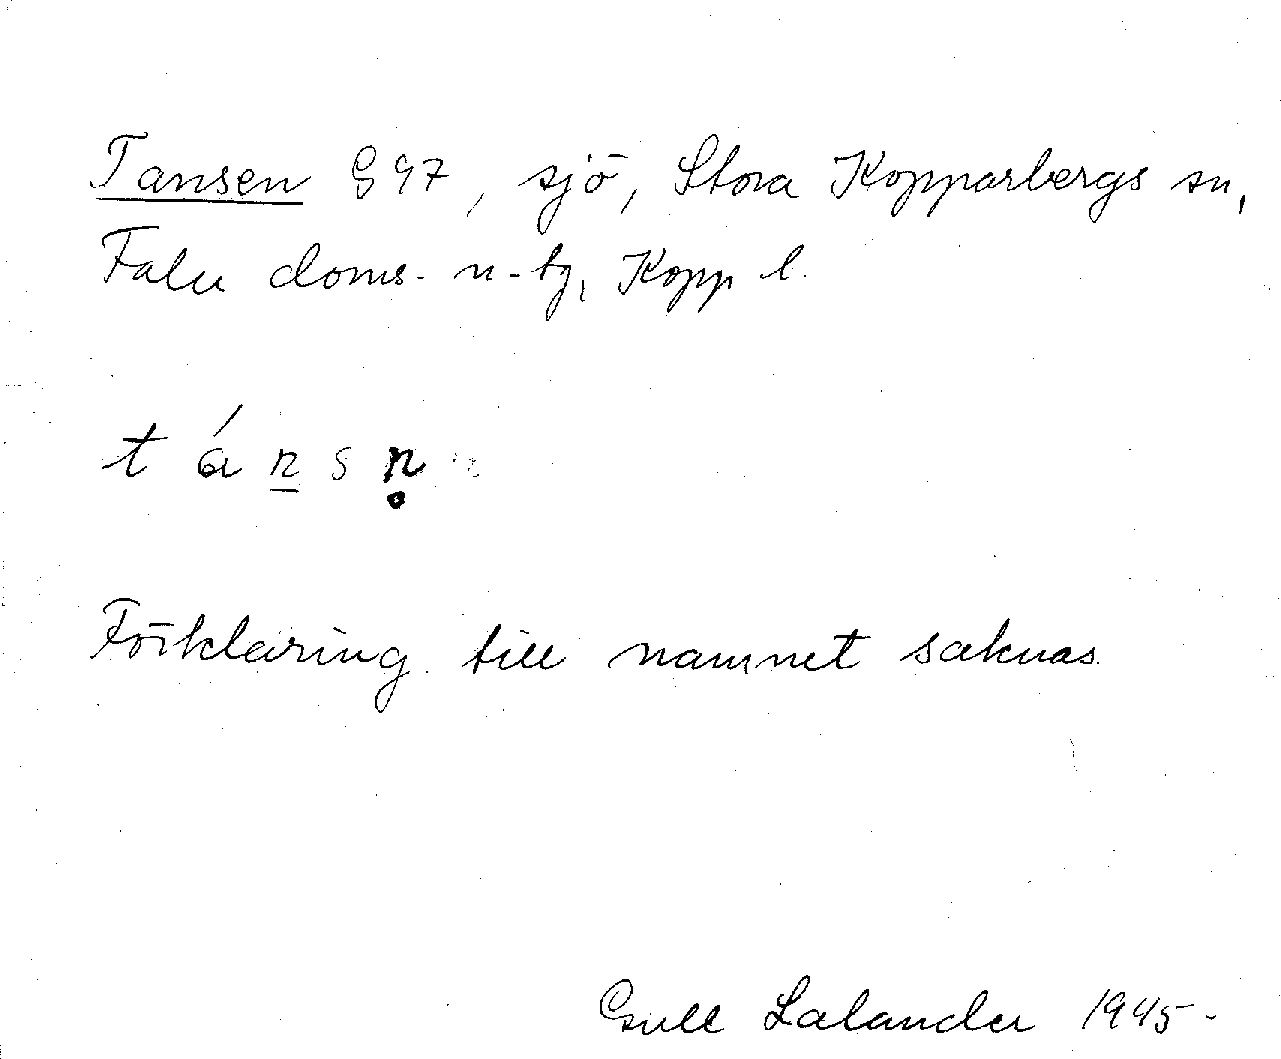 Tansen G97, sjö, Stora Kopparbergs sn,
Falu doms- n-tg, Kopp l.
t á n̲ s n̥
Förklaring till namnet saknas.
Gull Lalander 1945-